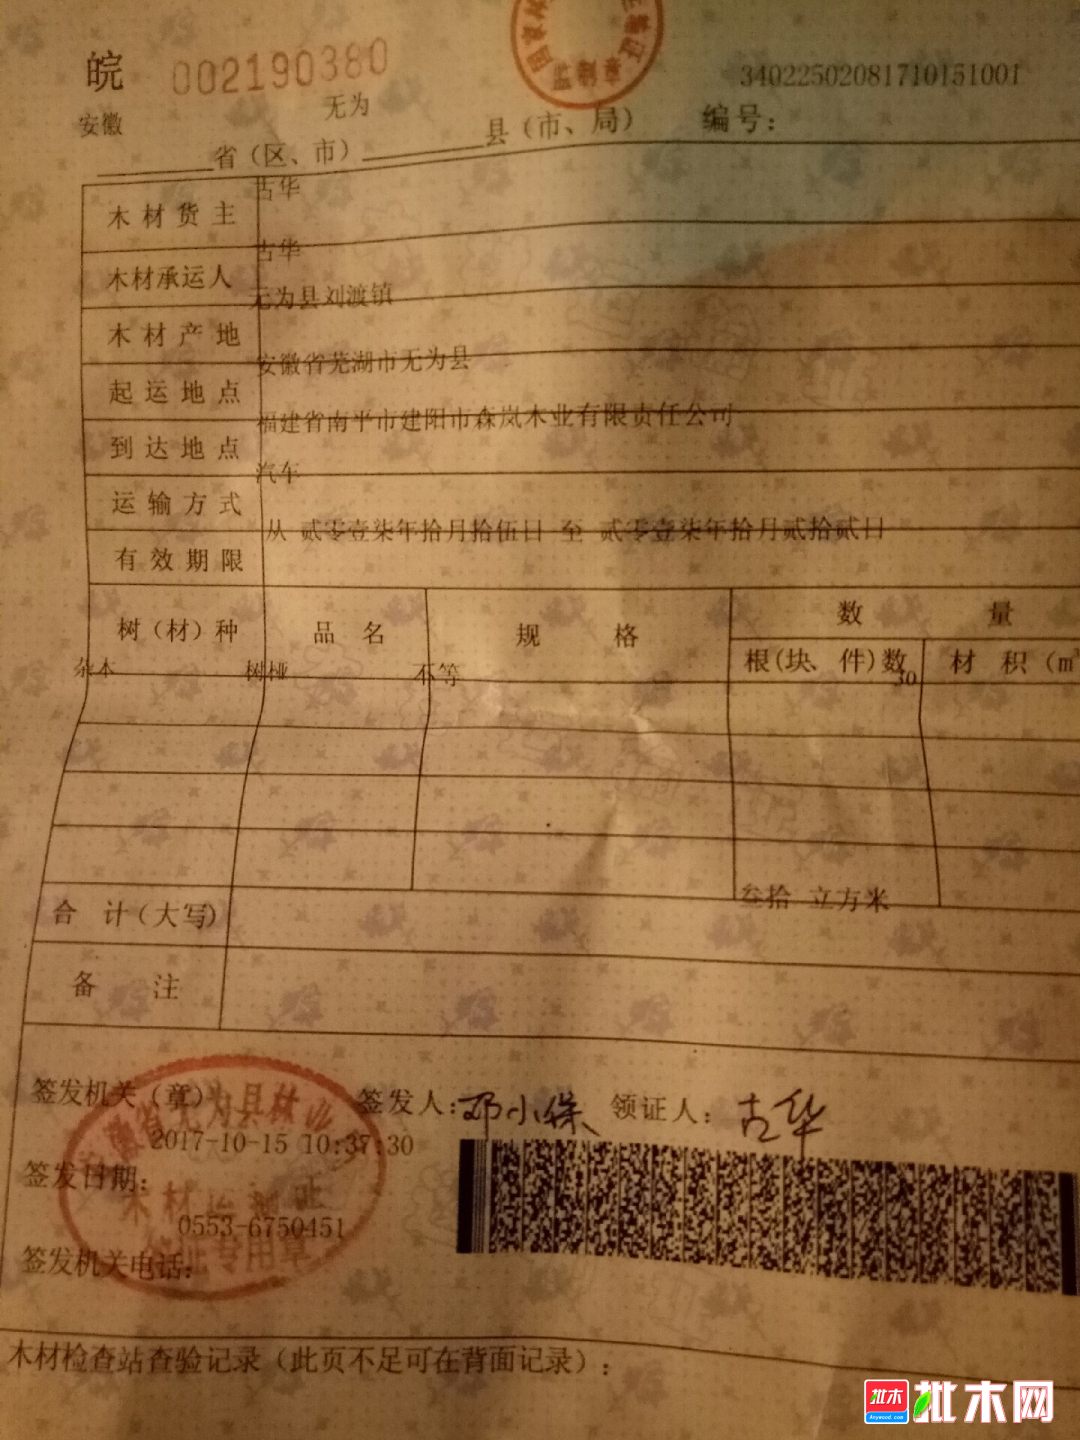 皖 002190380
34022502081710151001
安徽 无为
省（区、市） 县（市、局） 编号：
木材货主 古华
木材承运人 古华
木材产地 无为县刘渡镇
起运地点 安徽省芜湖市无为县
到达地点 福建省南平市建阳市森岚木业有限责任公司
运输方式 汽车
有效期限 从 贰零壹柒年拾月拾伍日 至 贰零壹柒年拾月贰拾贰日
树（材）种 品名 规格 数量
根（块、件）数 材积（m³
杂木 树桠 不等 30
合计（大写） 叁拾 立方米
备注
签发机关（章） 签发人：邓小保 领证人：古华
2017-10-15 10:37:30
签发日期：
0553-6750451
签发机关电话：
木材检查站查验记录（此页不足可在背面记录）：
批木 批木网
Anywood.com